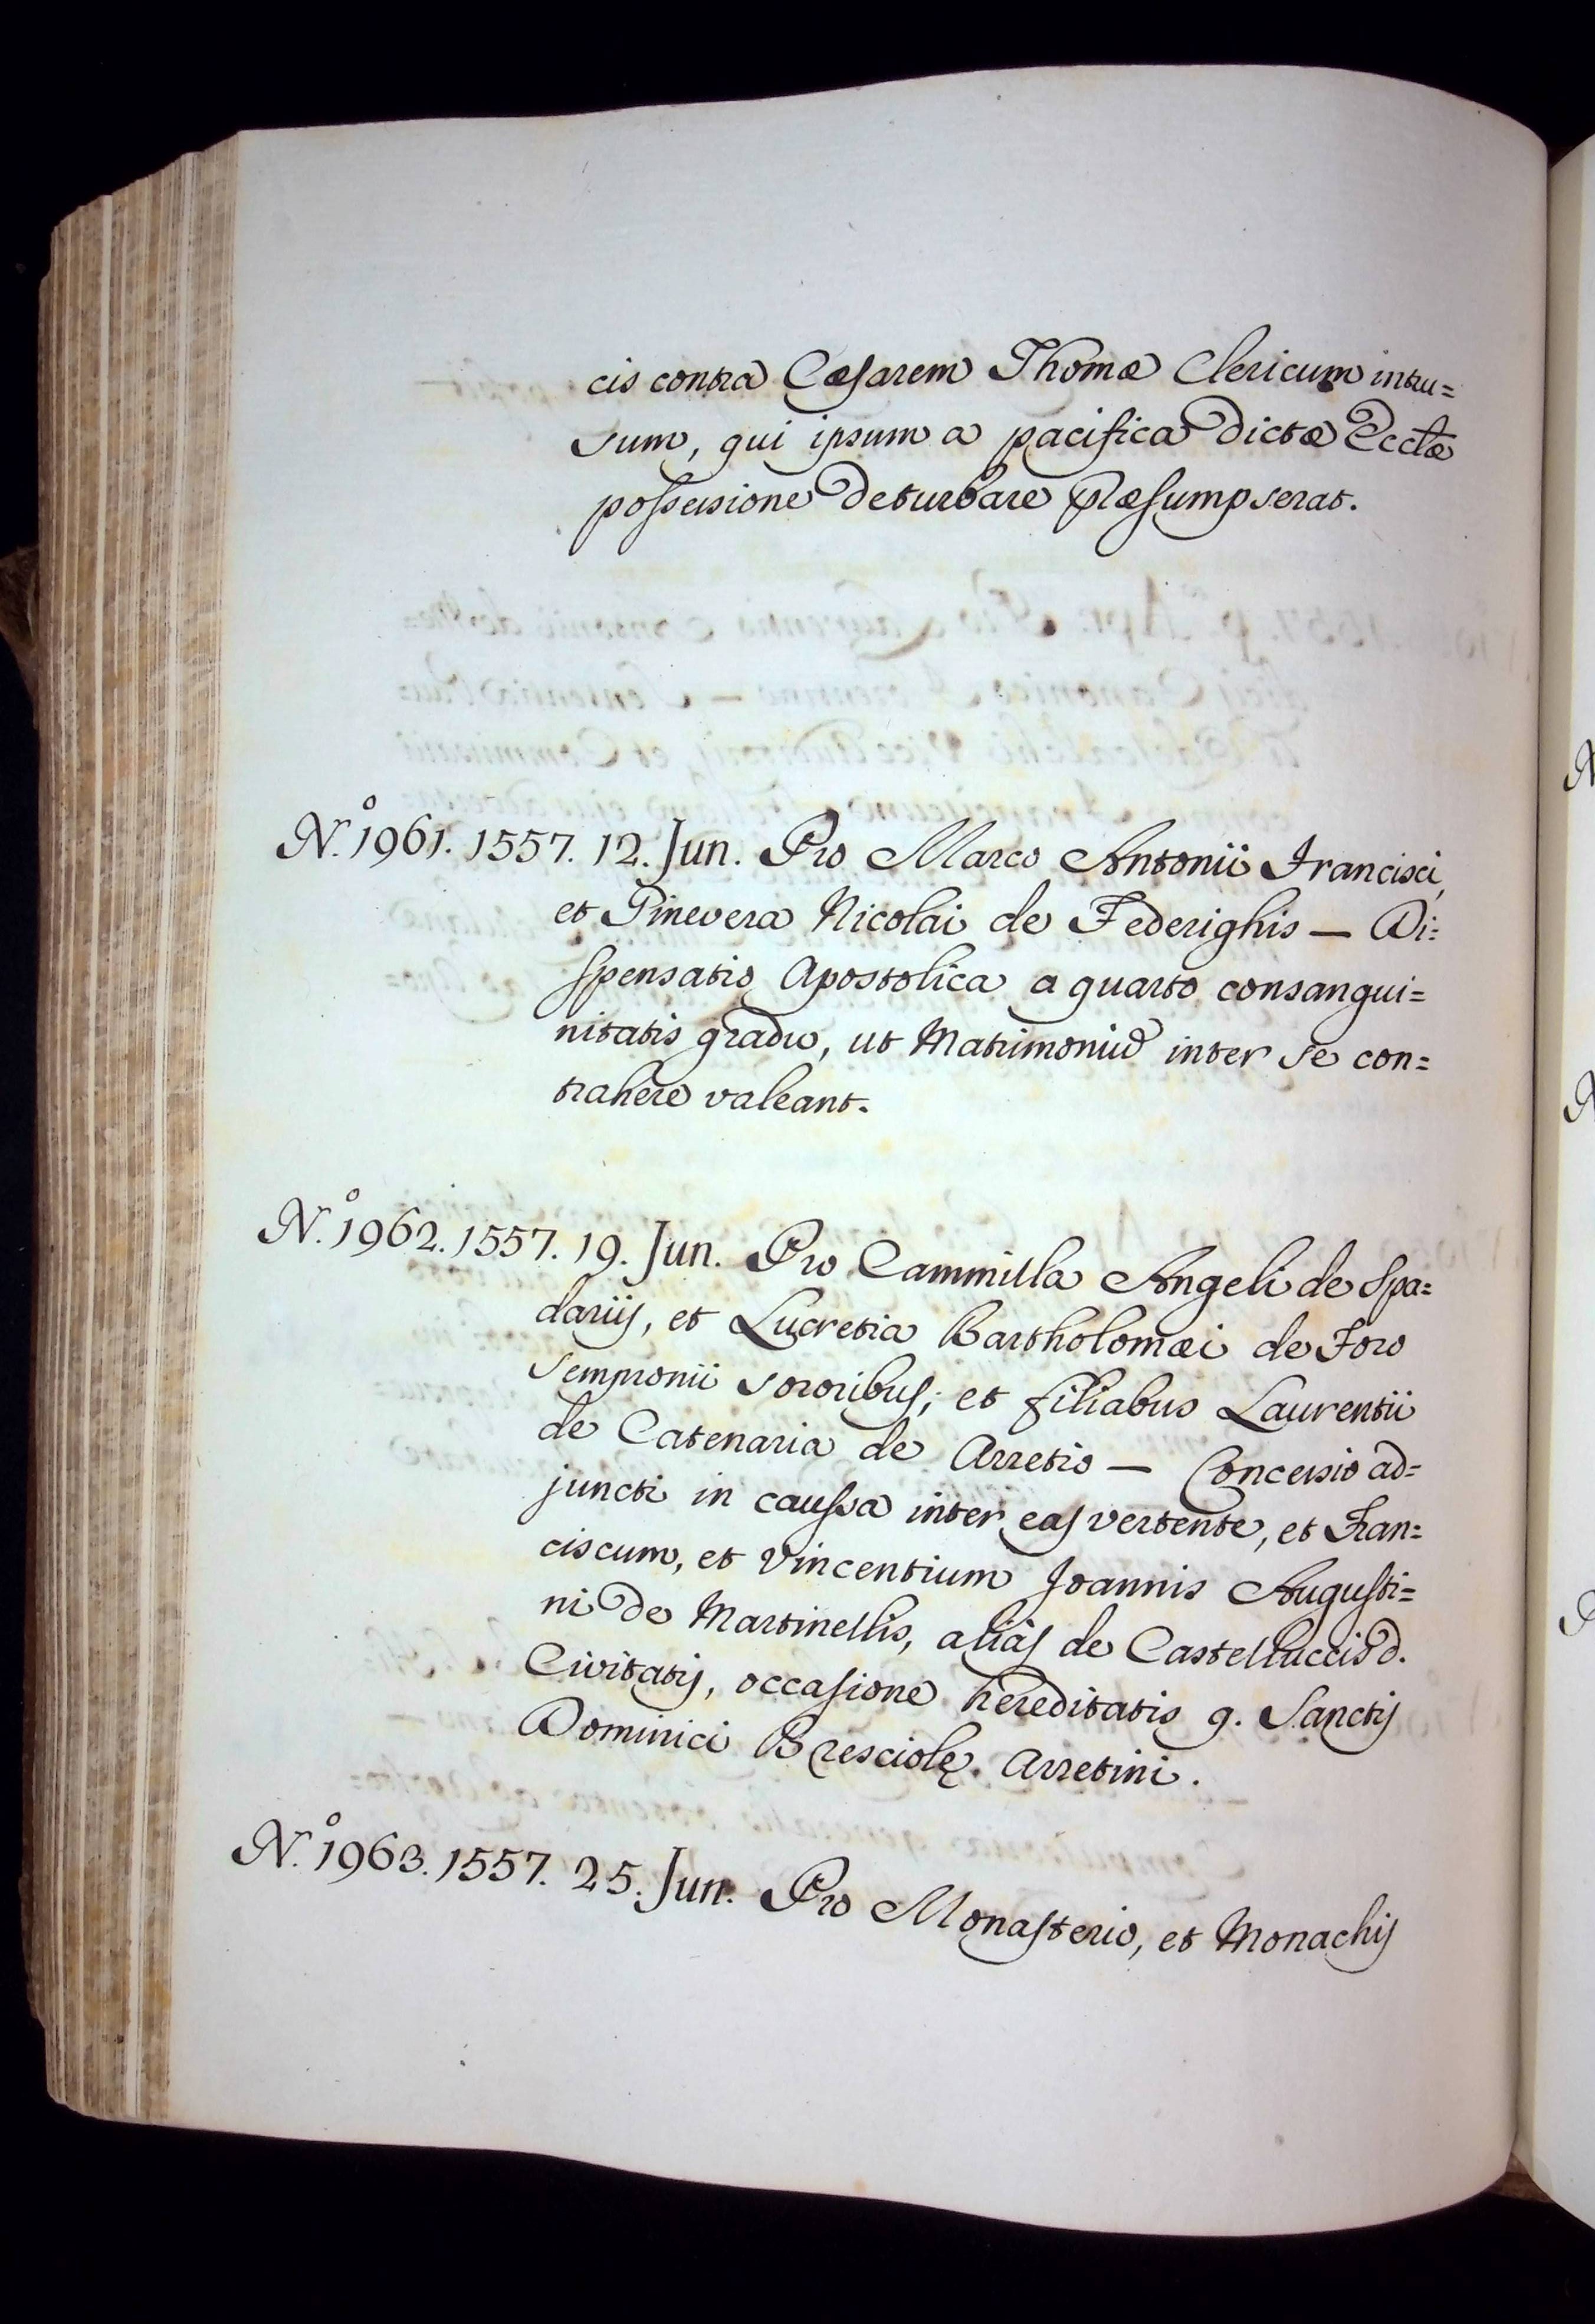 cis contra Cæsarem Thomæ Clericum intru=
sum, qui ipsum a pacifica dictæ Ecctæ
possessione deturbare præsumpserat.
N.° 1961. 1557. 12. Jun. Pro Marco Antonii Francisci,
et Ginevera Nicolai de Federighis — Di=
spensatio Apostolica a quarto consangui=
nitatis gradu, ut Matrimoniũ inter se con=
trahere valeant.
N.° 1962. 1557. 19. Jun. Pro Cammilla Angeli de Spa=
darijs, et Lucretia Bartholomæi de Foro
Sempronii sororibus, et filiabus Laurentii
de Catenaria de Arretio — Concessio ad=
juncti in caussa inter eas vertente, et Fran=
ciscum, et Vincentium Joannis Augusti=
ni de Martinellis, alias de Castelluccis d.
Civitatis, occasione hereditatis q. Sanctis
Dominici Bresciolę Arretini.
N.° 1963. 1557. 25. Jun. Pro Monasterio, et Monachis